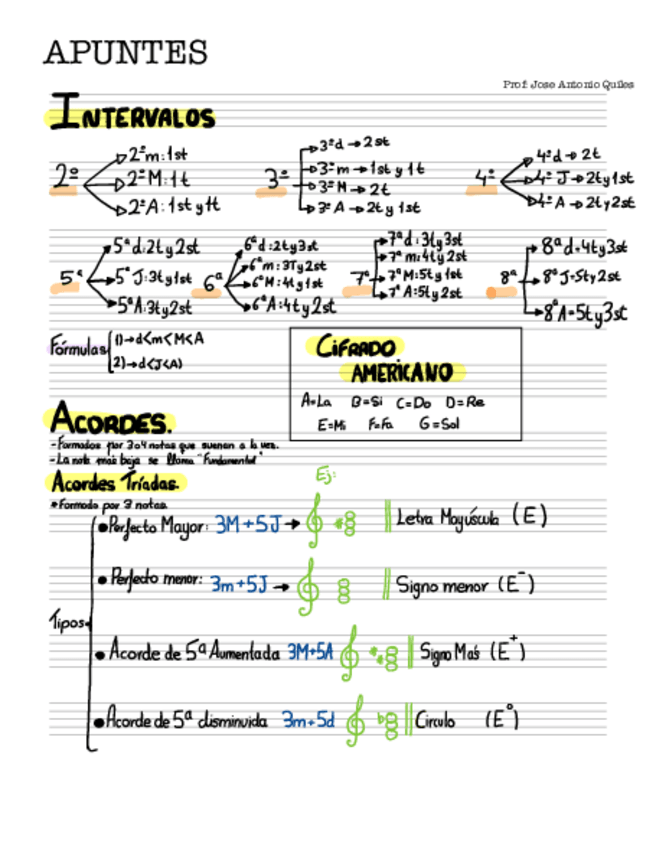 APUNTES
Prof: Jose Antonio Quiles
INTERVALOS
2ª
2ª m: 1st
2ª M: 1t
2ª A: 1st y 1t
3ª
3ª d → 2st
3ª m → 1st y 1t
3ª M → 2t
3ª A → 2t y 1st
4ª
4ª d → 2t
4ª J → 2t y 1st
4ª A → 2t y 2st
5ª
5ª d: 2t y 2st
5ª J: 3t y 1st
5ª A: 3t y 2st
6ª
6ª d: 2t y 3st
6ª m: 3T y 2st
6ª M: 4t y 1st
6ª A: 4t y 2st
7ª
7ª d: 3t y 3st
7ª m: 4t y 2st
7ª M: 5t y 1st
7ª A: 5t y 2st
8ª
8ª d = 4t y 3st
8ª J = 5t y 2st
8ª A = 5t y 3st
Fórmulas
1) → d<m<M<A
2) → d<J<A)
CIFRADO
AMERICANO
A=La B=Si C=Do D=Re
E=Mi F=Fa G=Sol
ACORDES.
- Formados por 3 o 4 notas que suenan a la vez.
- La nota más baja se llama "Fundamental"
Acordes Tríadas.
Ej:
• Formado por 3 notas.
Tipos
• Perfecto Mayor: 3M+5J → Letra Mayúscula (E)
• Perfecto menor: 3m+5J → Signo menor (E⁻)
• Acorde de 5ª Aumentada 3M+5A Signo Más (E⁺)
• Acorde de 5ª disminuida 3m+5d Circulo (E°)